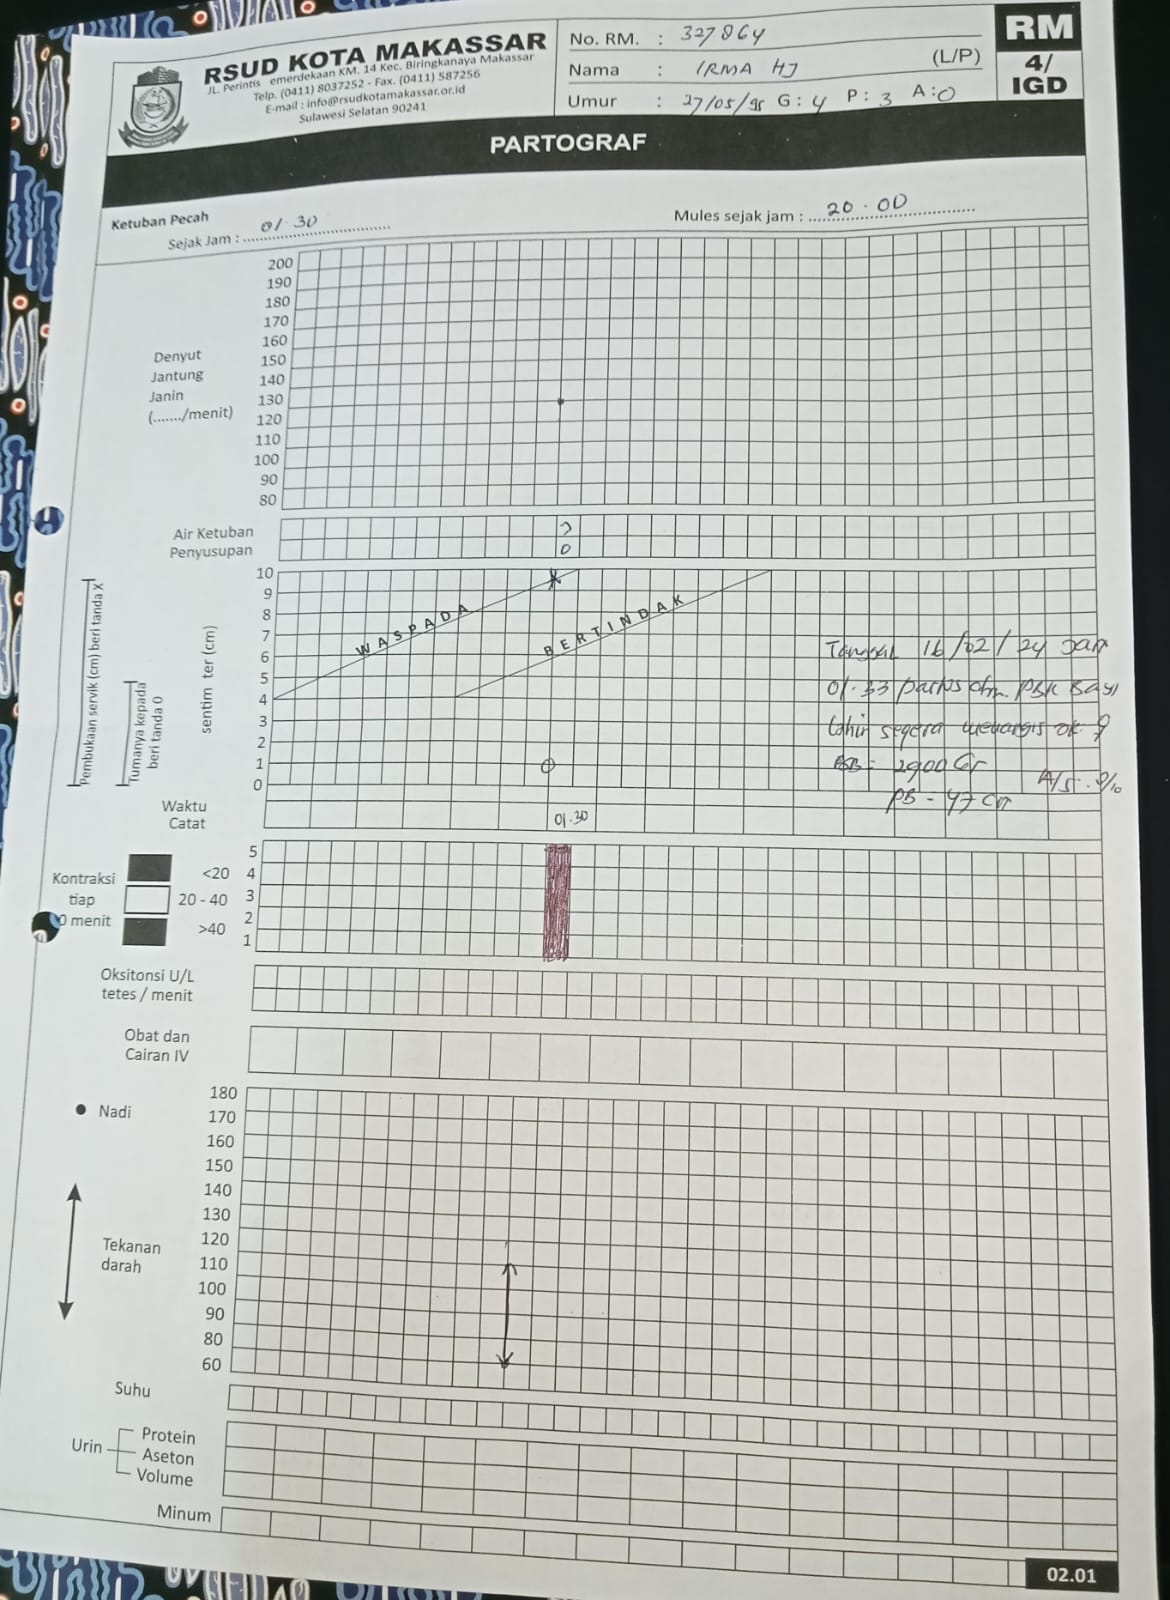 RSUD KOTA MAKASSAR
JL. Perintis emerdekaan KM. 14 Kec. Biringkanaya Makassar
Telp. (0411) 8037252 - Fax. (0411) 587256
E-mail : info@rsudkotamakassar.or.id
Sulawesi Selatan 90241
No. RM. : 327864
Nama : IRMA HJ (L/P)
Umur : 27/05/95 G: 4 P: 3 A: 0
RM
4/
IGD
PARTOGRAF
Ketuban Pecah
Sejak Jam : 01.30
Mules sejak jam : 20.00
200
190
180
170
160
150
140
130
120
110
100
90
80
Denyut
Jantung
Janin
(......./menit)
Air Ketuban
Penyusupan
0
10
9
8
7
6
5
4
3
2
1
0
Pembukaan servik (cm) beri tanda X
Tumanya kepada
beri tanda 0
sentim ter (cm)
WASPADA
BERTINDAK
Tanggal 16/02/24 Jam
01.33 partus dgn. PBK Bayi
Lahir segera menangis
BB = 2900 Gr
PB = 47 cm
Waktu
Catat
01.30
Kontraksi
tiap
0 menit
<20
20 - 40
>40
5
4
3
2
1
Oksitonsi U/L
tetes / menit
Obat dan
Cairan IV
Nadi
Tekanan
darah
180
170
160
150
140
130
120
110
100
90
80
60
Suhu
Urin
Protein
Aseton
Volume
Minum
02.01